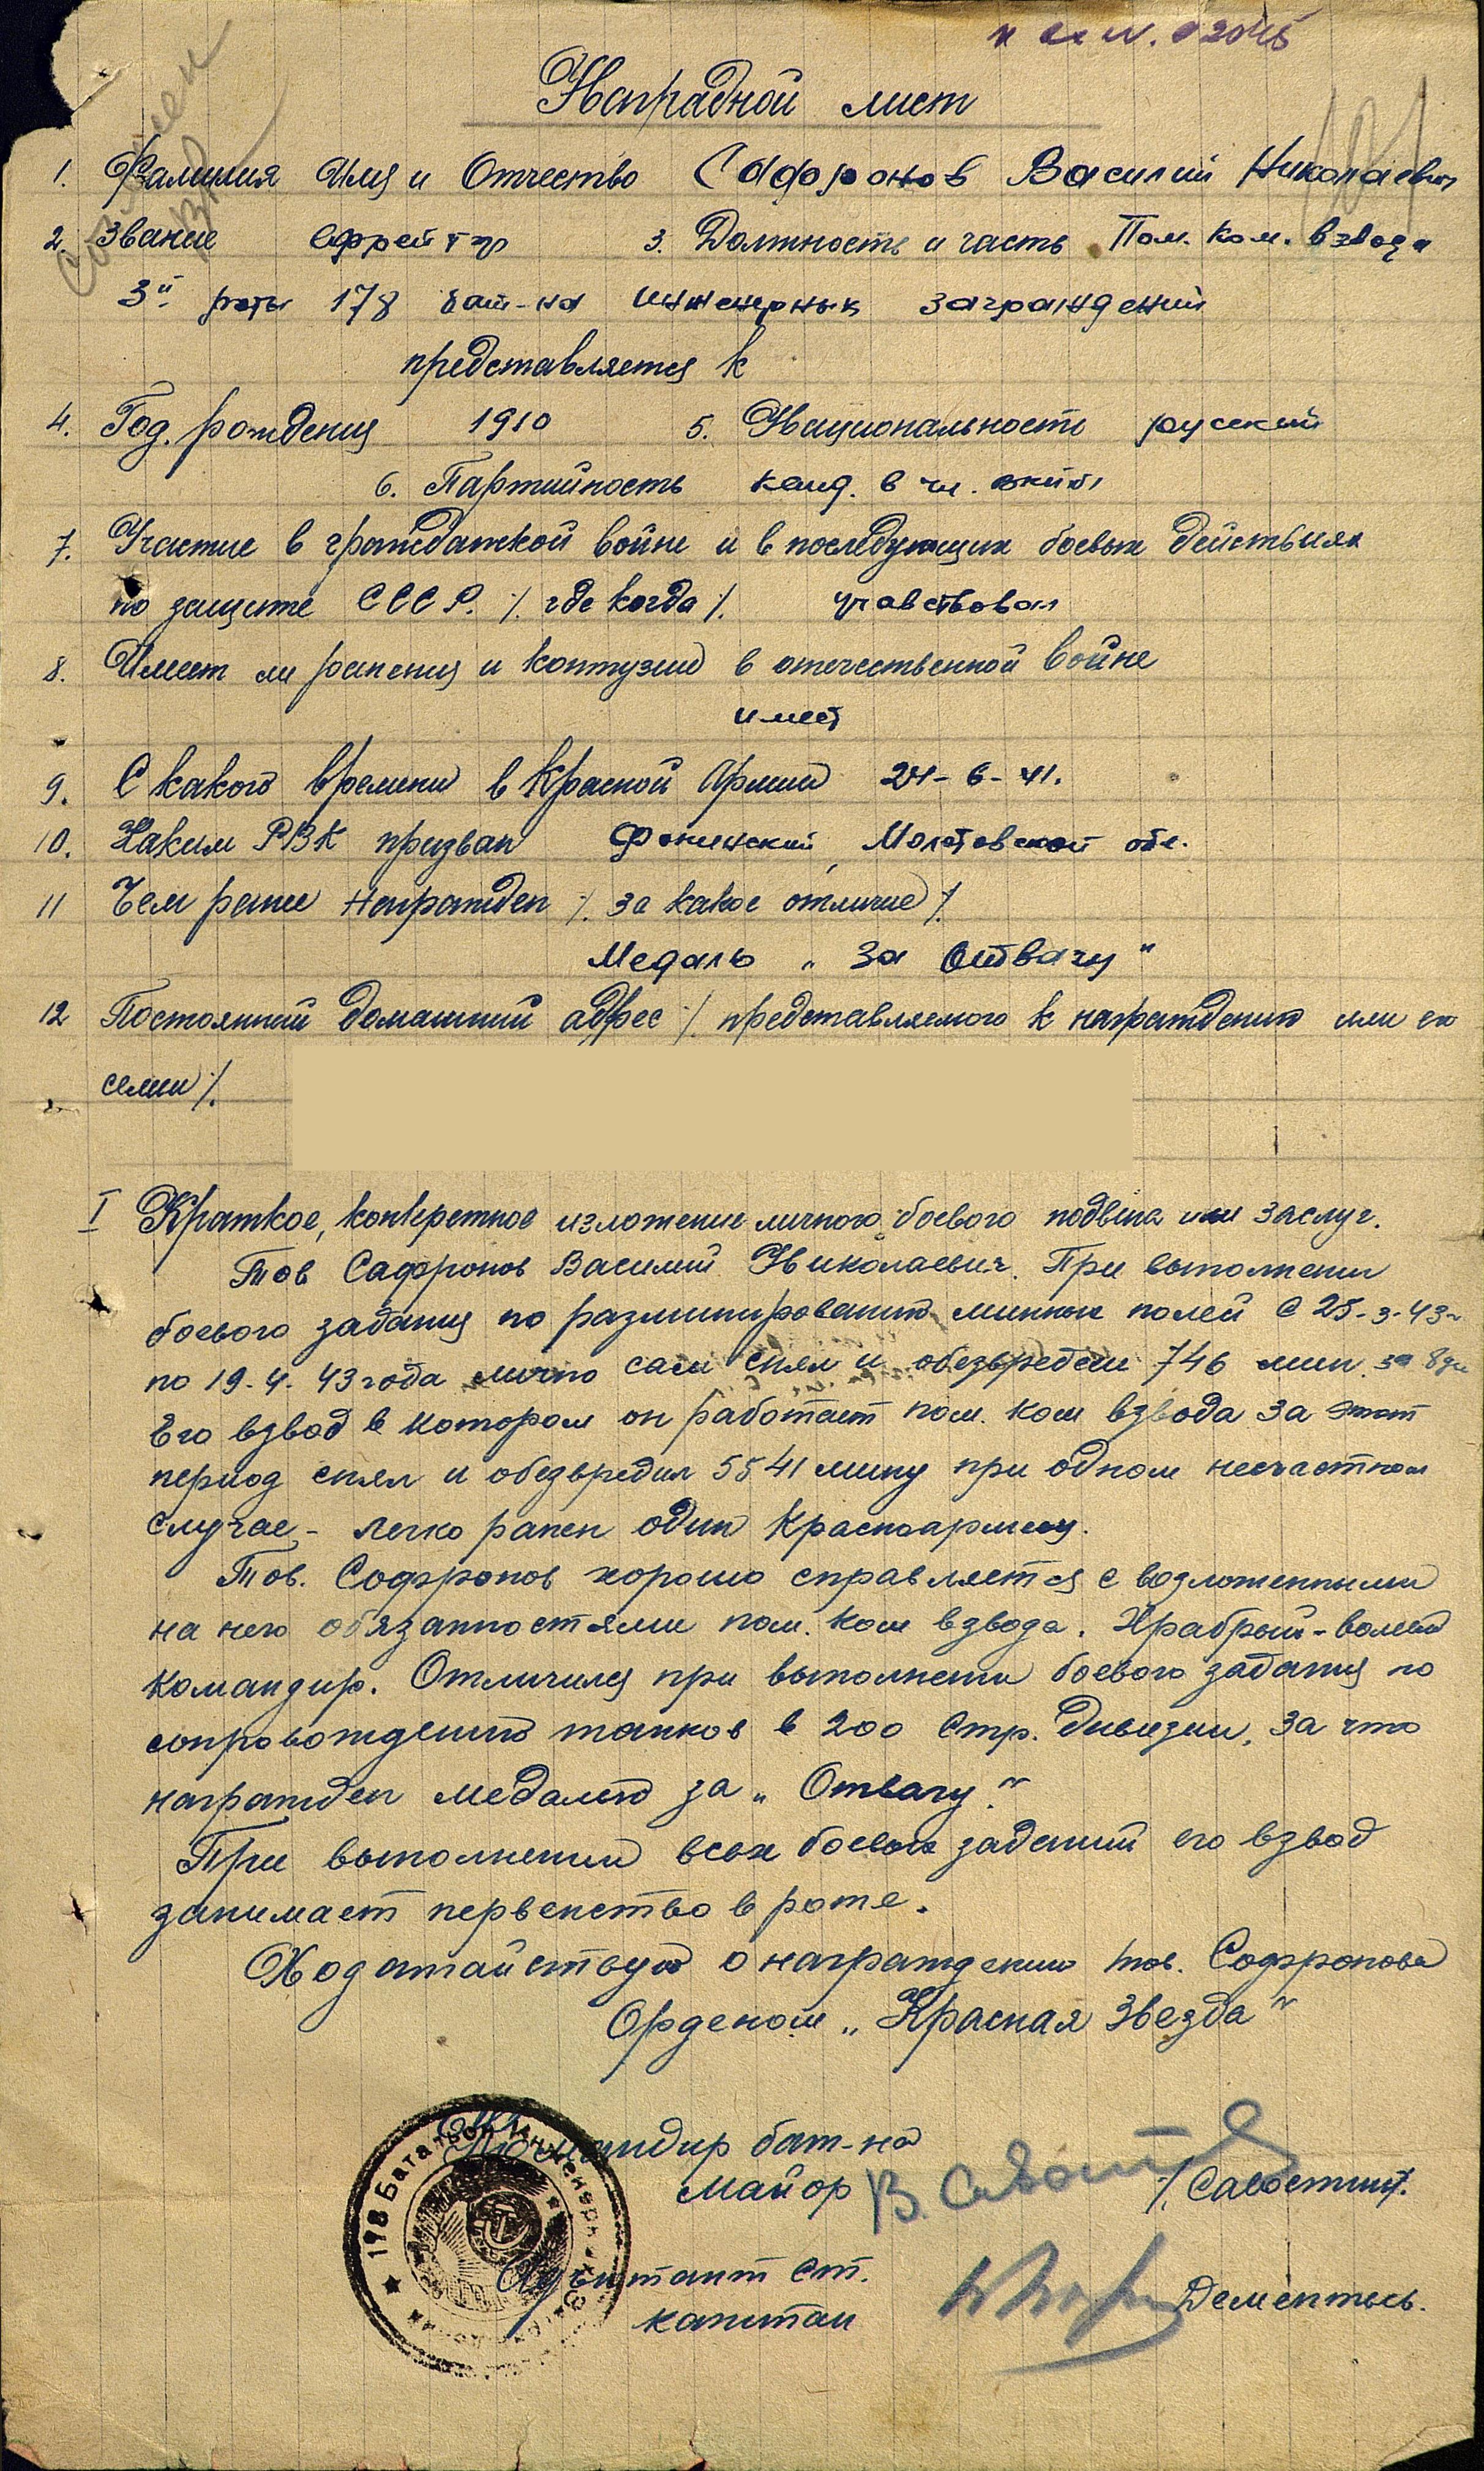 Наградной лист
1. Фамилия Имя и Отчество Саффронов Василий Николаевич
2. Звание Ефрейтор 3. Должность и часть Пом. ком. взвода
3й роты 178 бат-на инженерных заграждений
представляется к
4. Год. рождения 1910 5. Национальность русский
6. Партийность канд. в чл. вкпб/
7. Участие в гражданской войне и в последующих боевых действиях
по защите СССР. /. где когда /. учавствовал
8. Имеет ли ранения и контузии в отечественной войне
имеет
9. С какого времени в Красной Армии 24-6-41.
10. Каким РВК призван Фокинский, Молотовской обл.
11 Чем ранее Награжден /. за какое отличие /.
Медаль „За Отвагу"
12 Постоянный домашний адрес /. представляемого к награждению или его
семьи /.
I Краткое, конкретное изложение личного боевого подвига или заслуг.
Тов Сафронов Василий Николаевич. При выполнении
боевого задания по разминированию минных полей с 25-3-43г
по 19.4.43 года лично сам снял и обезвредил 746 мин. за 8 дн
Его взвод в котором он работает пом. ком взвода за этот
период снял и обезвредил 5541 мину при одном несчастном
случае - легко ранен один Красноармеец.
Тов. Софронов хорошо справляется с возложенными
на него обязанностями пом. ком взвода. Храбрый-волевой
командир. Отличился при выполнении боевого задания по
сопровождению танков в 200 Стр. дивизии, за что
награжден медалью за „Отвагу."
При выполнении всех боевых заданий его взвод
занимает первенство в роте.
Ходатайствую о награждении тов. Софронова
Орденом „Красная Звезда"
Командир бат-на
майор В. Савостин /. Савостин /.
Адъютант ст.
капитан Дементьев.
178 Батальон Инженерных Заграждений